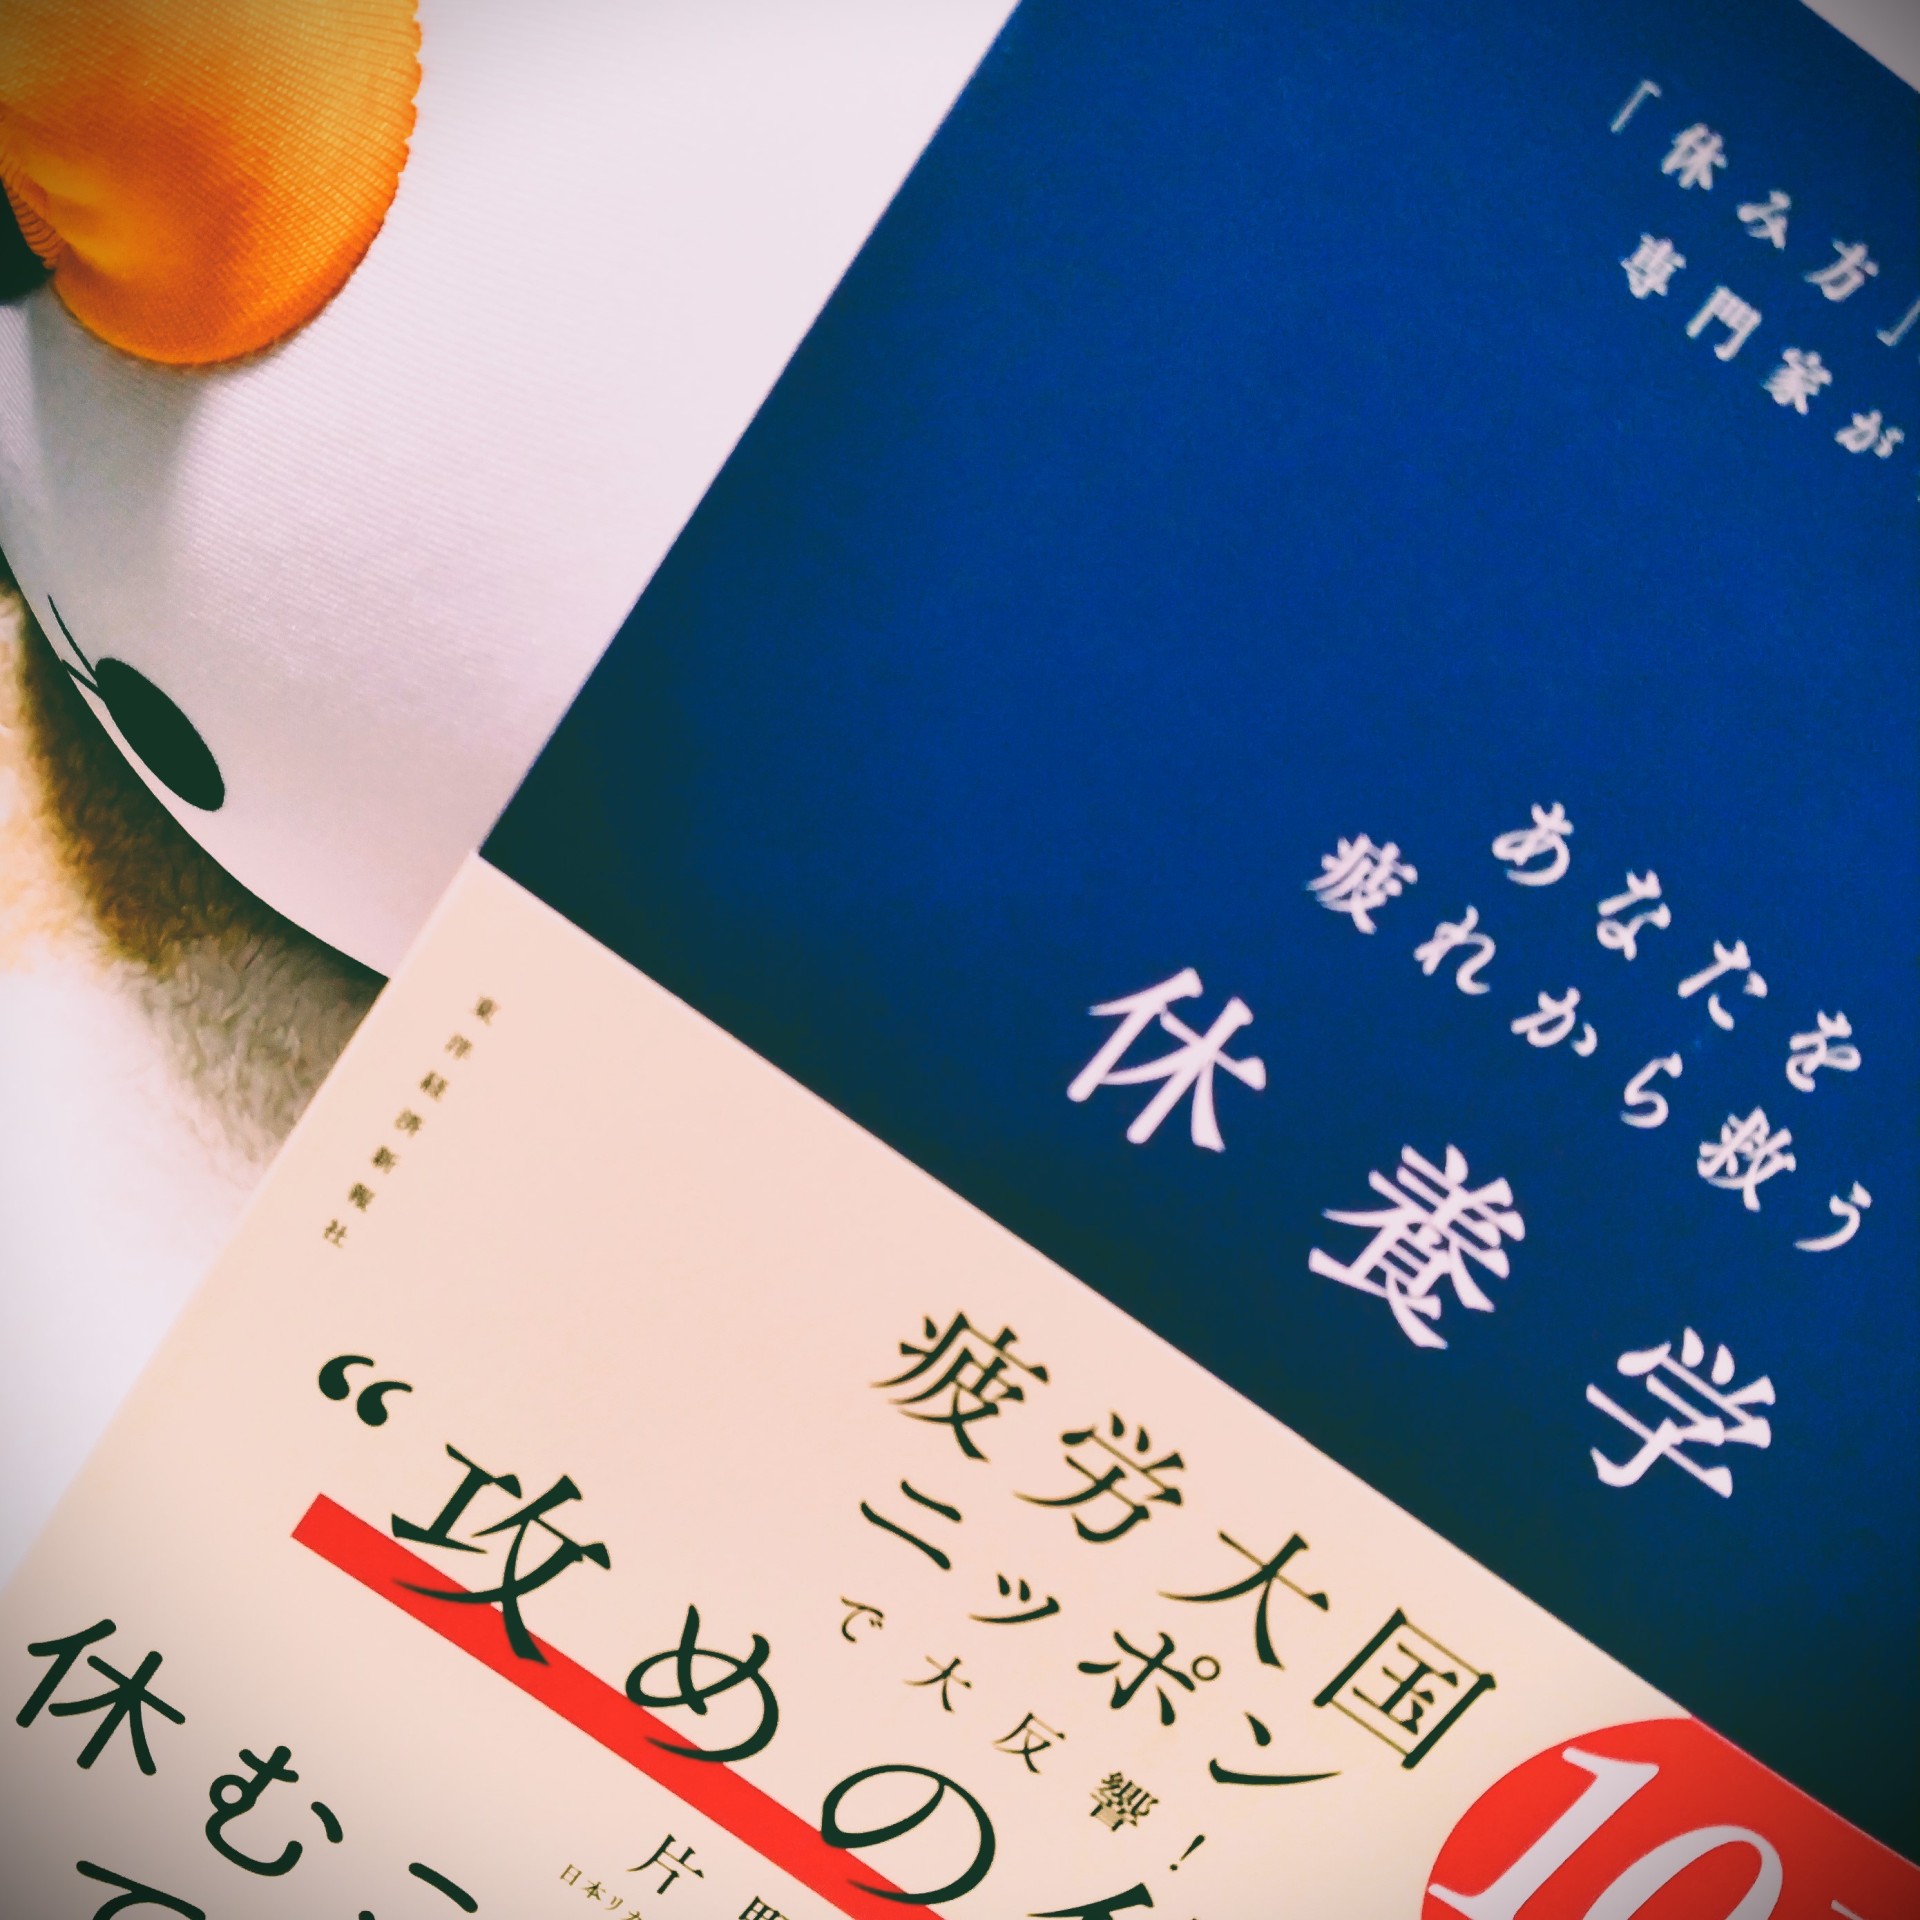 「休み方」
専門家が
あなたを
疲れから救う
休養学
東洋経済新報社
疲労大国
ニッポン
で大反響!
10
“攻めの
片野
日本リカ
休むこ